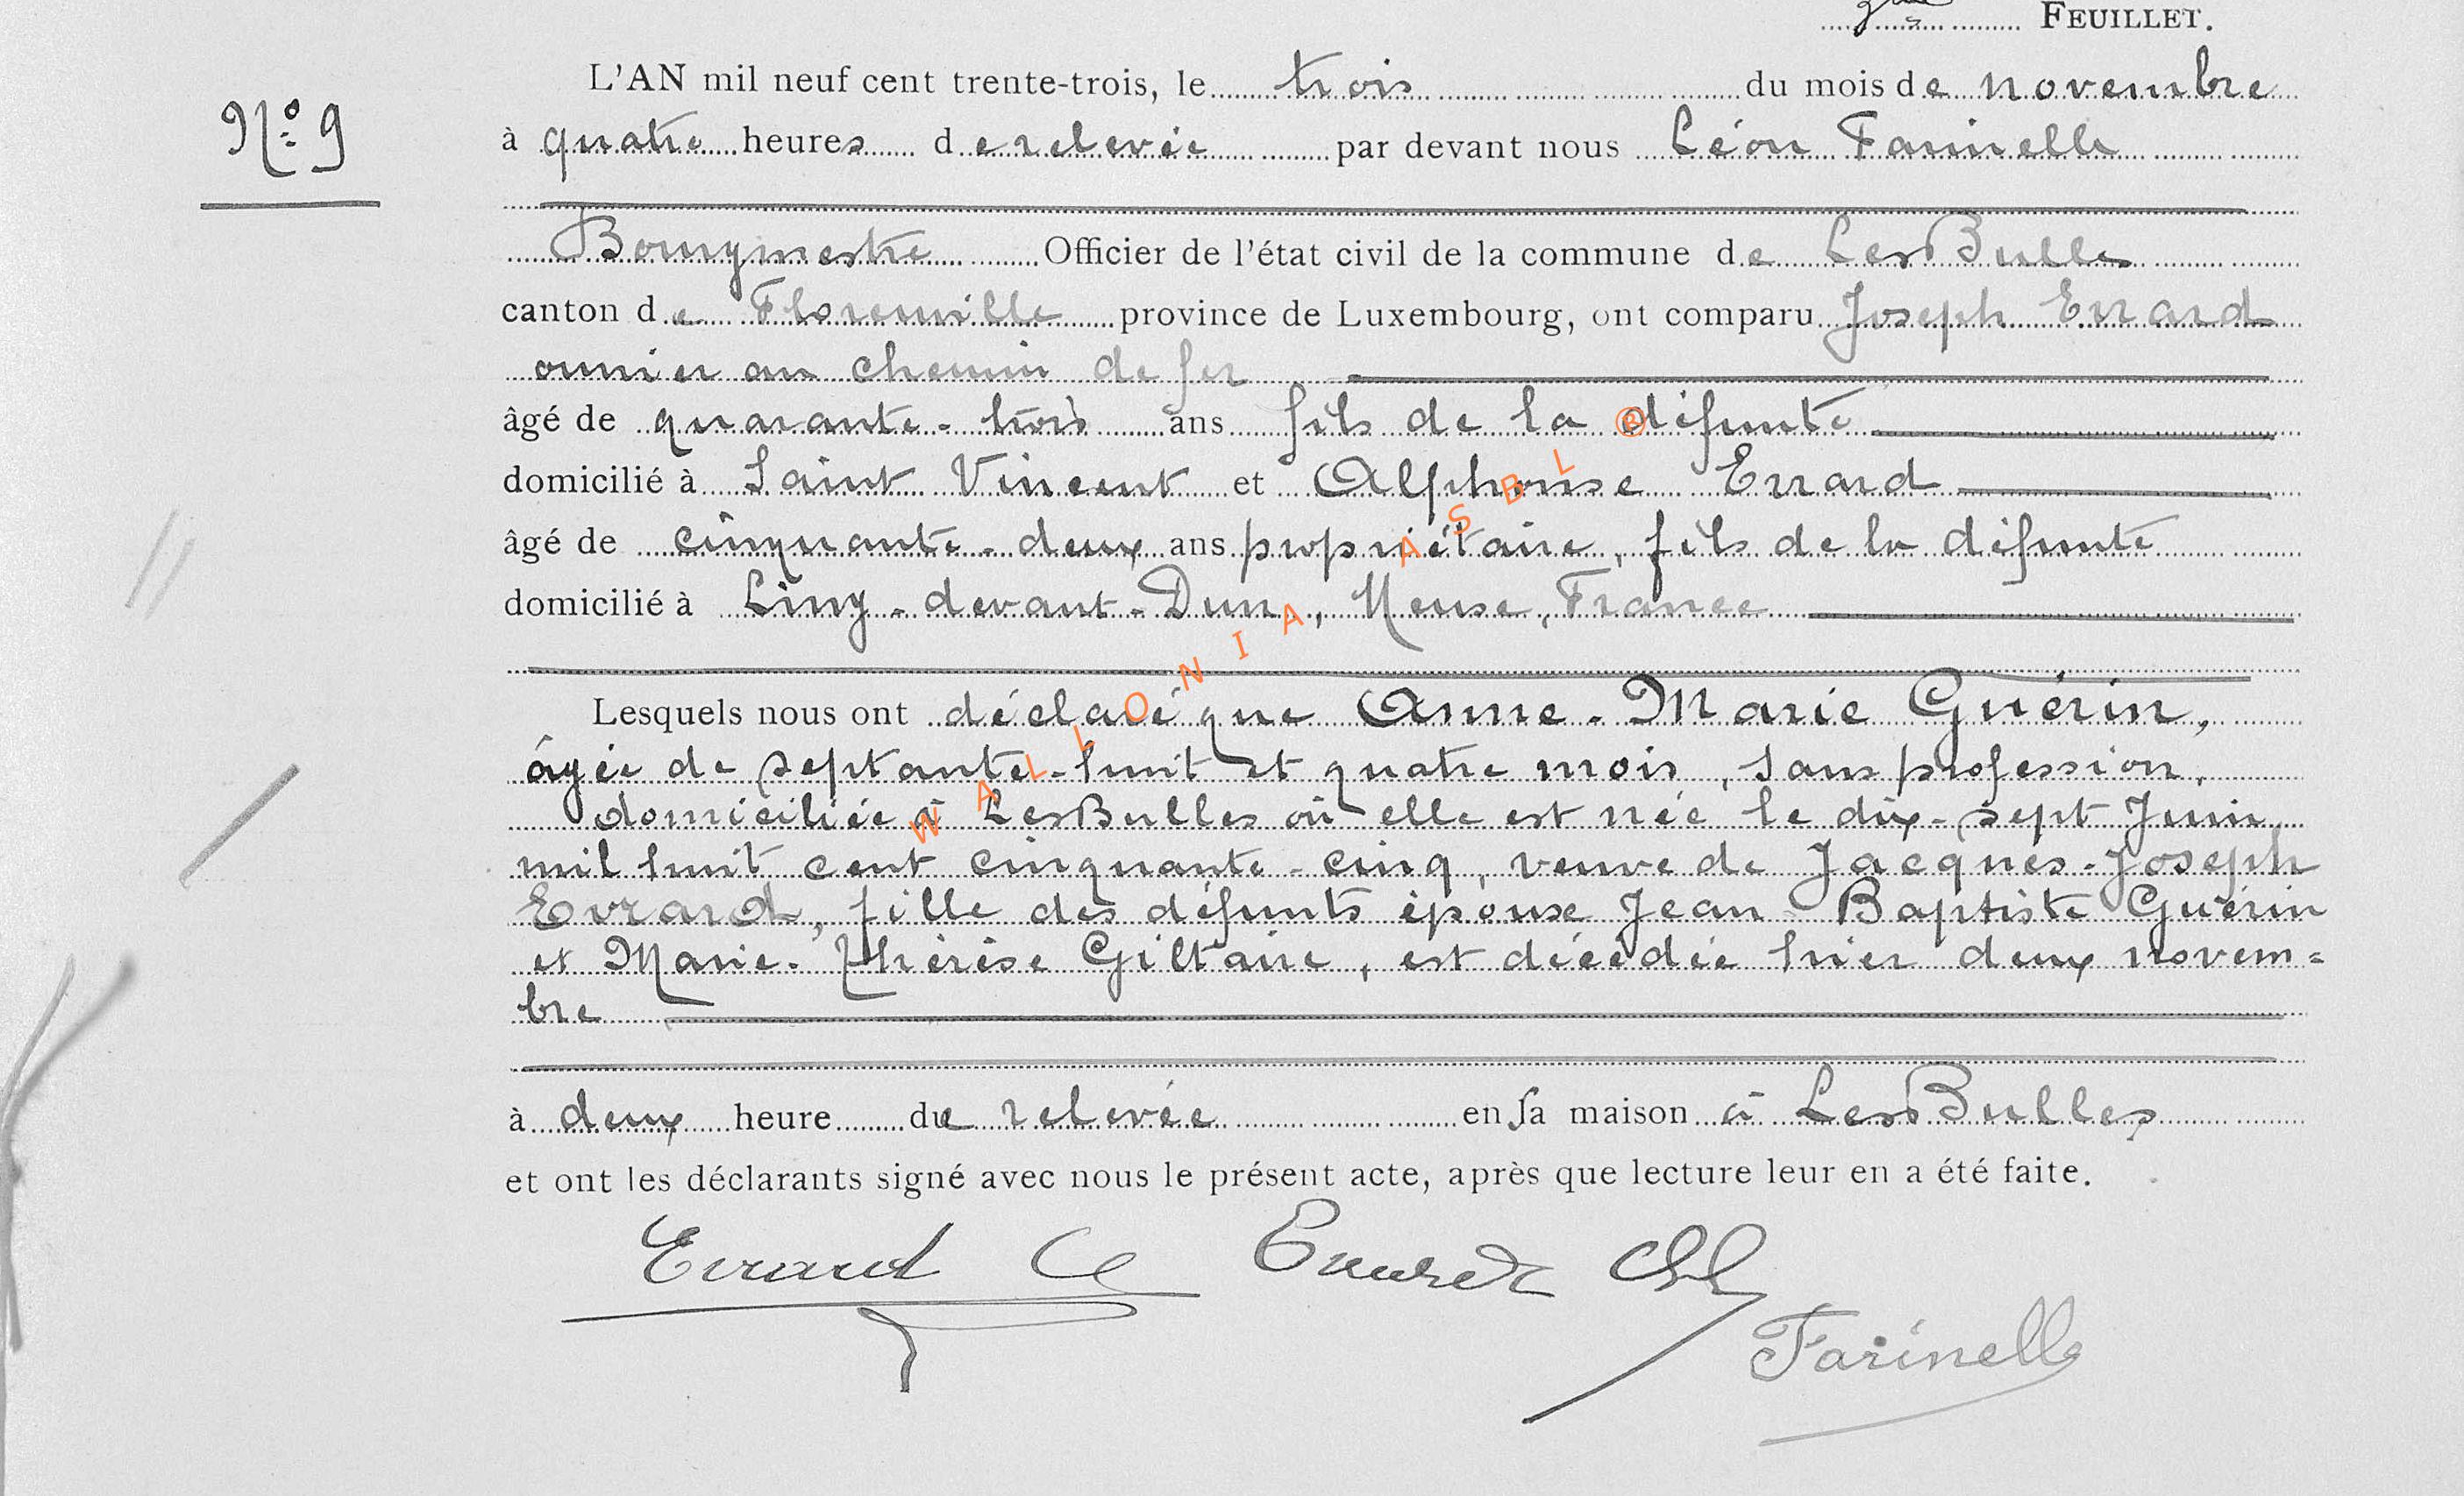 3me FEUILLET.
L'AN mil neuf cent trente-trois, le trois du mois de novembre
N° 9
à quatre heures de relevée par devant nous Léon Farinelle
Bourgmestre Officier de l'état civil de la commune de LesBulles
canton de Florenville province de Luxembourg, ont comparu Joseph Evrard
ouvrier au chemin de fer
âgé de quarante-trois ans fils de la défunte
domicilié à Saint Vincent et Alphonse Evrard
âgé de cinquante-deux ans propriétaire, fils de la défunte
domicilié à Liny-devant-Dun, Meuse, France
Lesquels nous ont déclaré que Anne-Marie Guérin,
âgée de septante-huit et quatre mois, sans profession,
domiciliée à LesBulles où elle est née le dix-sept Juin
mil huit cent cinquante-cinq, veuve de Jacques-Joseph
Evrard, fille des défunts époux Jean-Baptiste Guérin
et Marie-Thérèse Giltaire, est décédée hier deux novem=
bre
à deux heure de relevée en sa maison à LesBulles
et ont les déclarants signé avec nous le présent acte, après que lecture leur en a été faite.
Evrard Evrard
Farinelle
WALLONIA ASBL ®